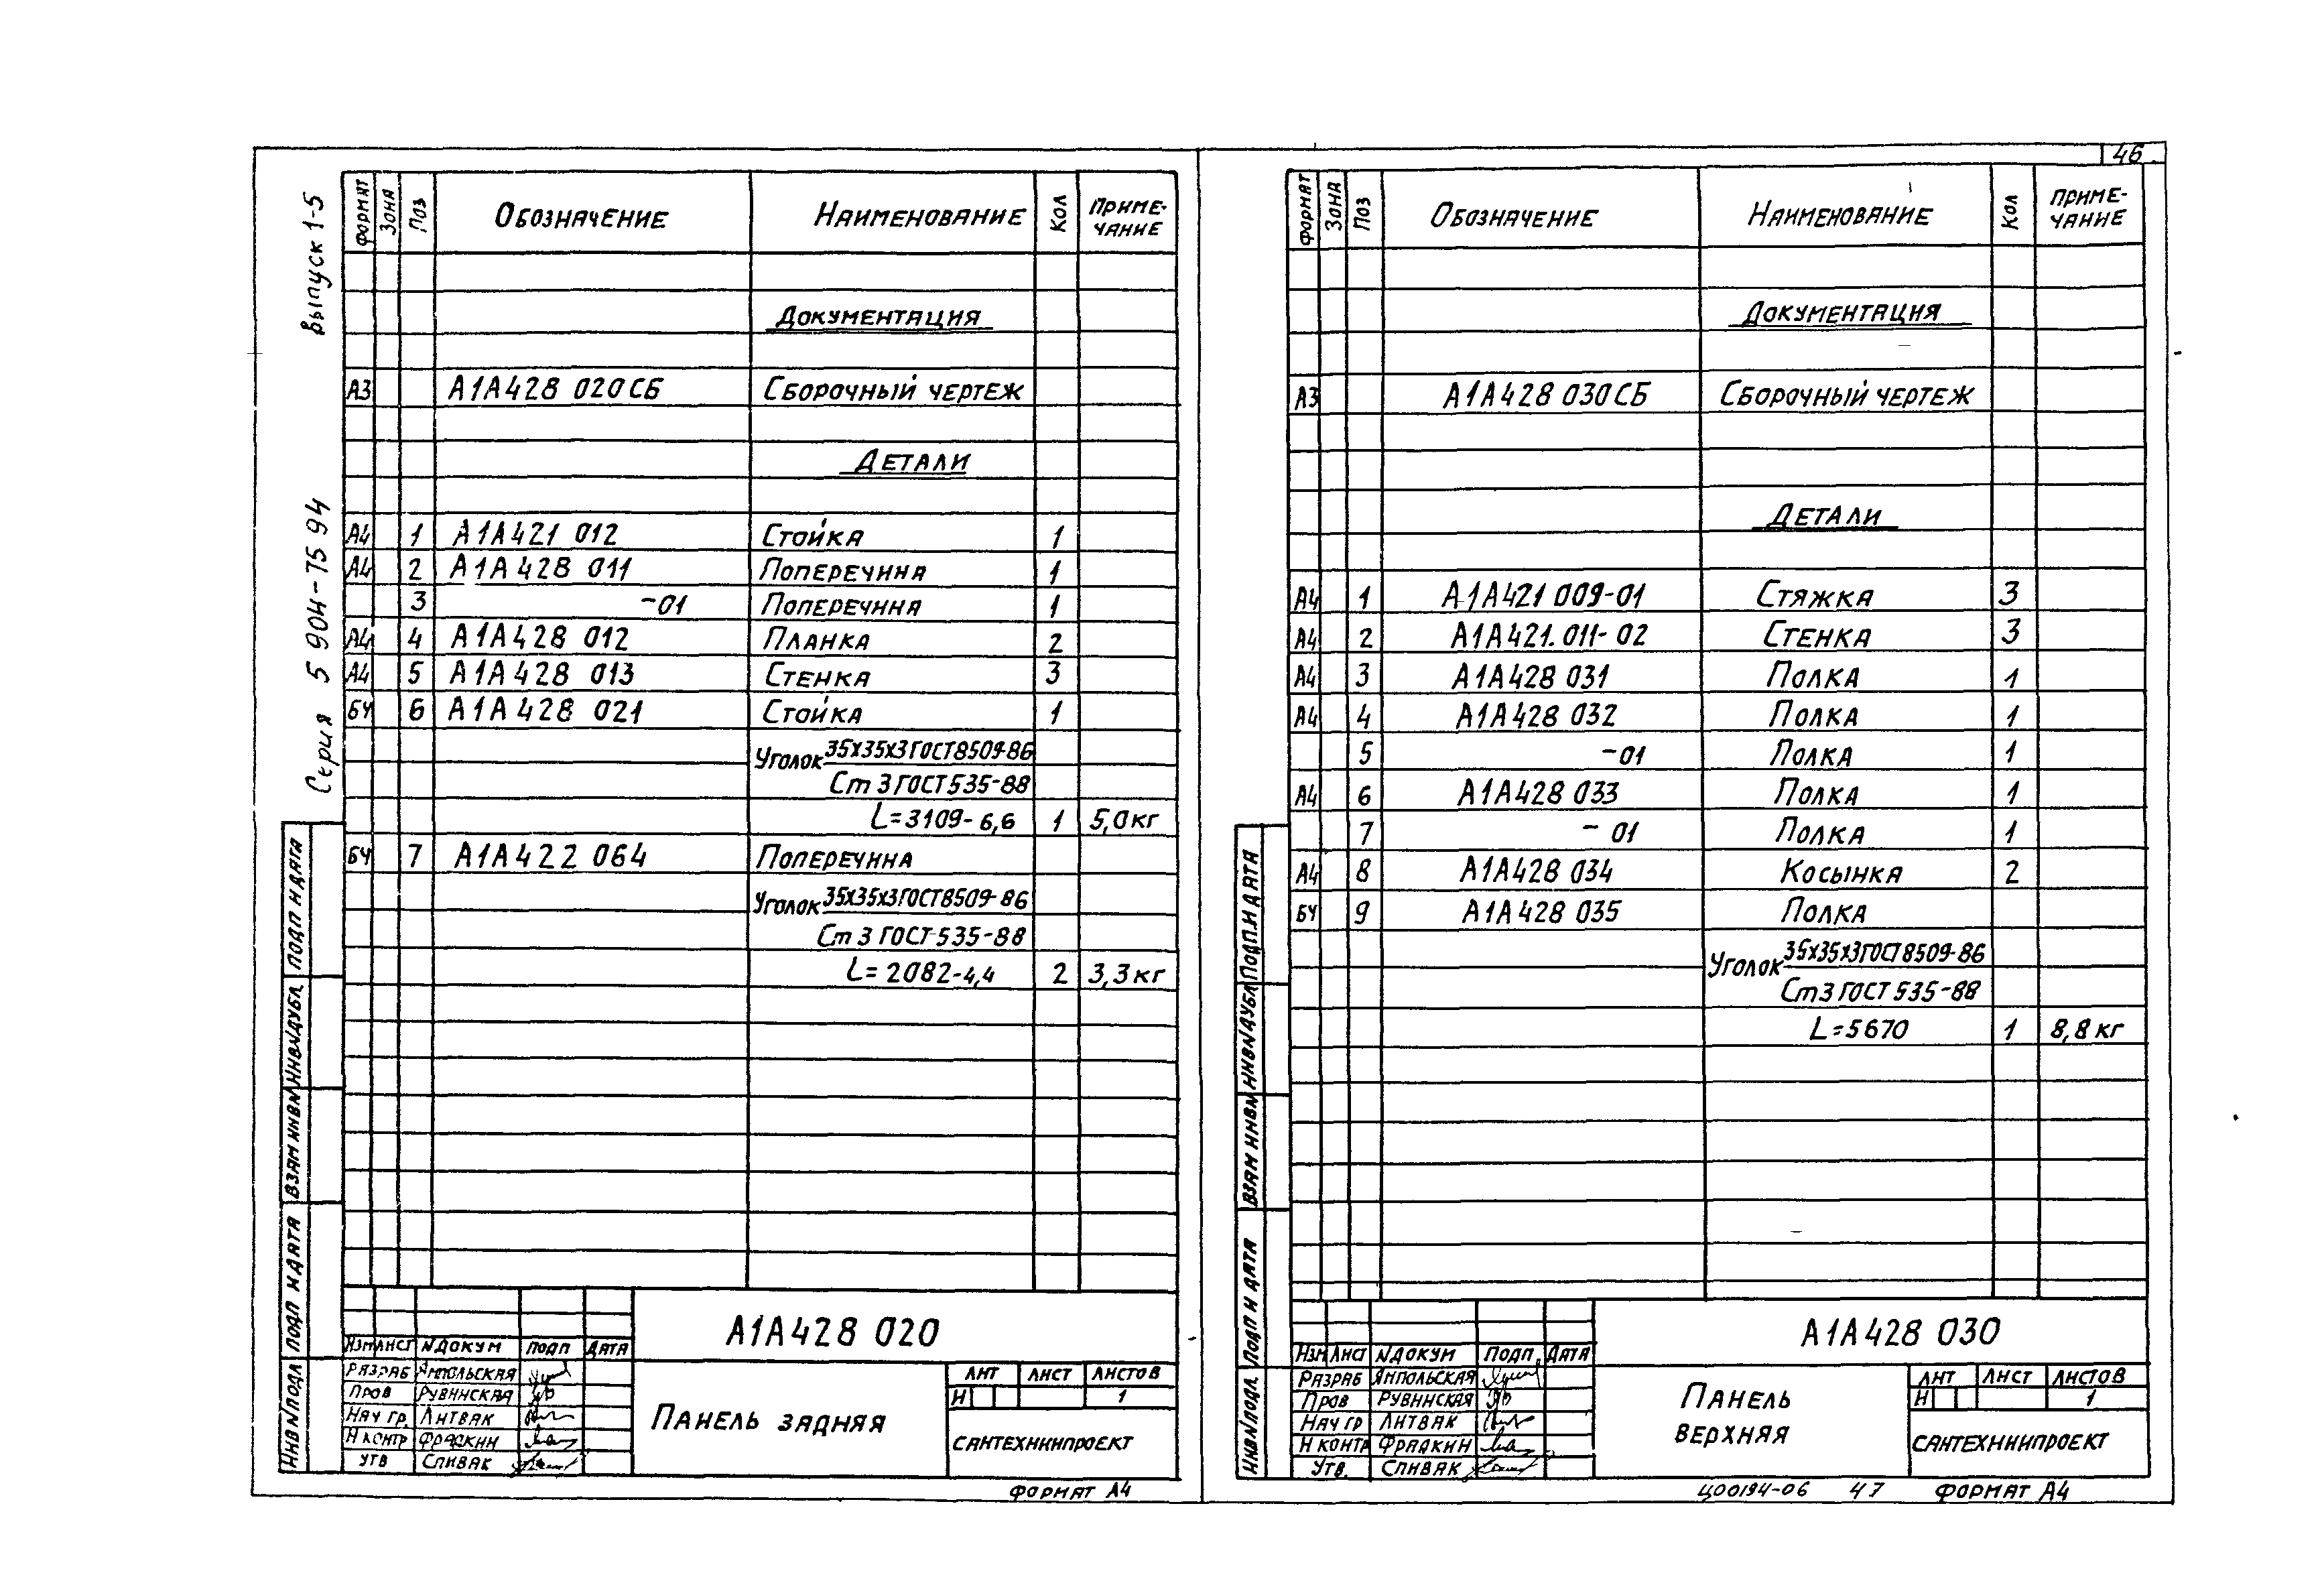 46
Серия 5 904-75 94 Выпуск 1-5
Формат Зона Поз Обозначение Наименование Кол Приме-
чание
Документация
А3 А1А428 020СБ Сборочный чертеж
Детали
А4 1 А1А421 012 Стойка 1
А4 2 А1А428 011 Поперечина 1
3 -01 Поперечина 1
А4 4 А1А428 012 Планка 2
А4 5 А1А428 013 Стенка 3
БЧ 6 А1А428 021 Стойка 1
Уголок 35х35х3 ГОСТ 8509-86
Ст 3 ГОСТ 535-88
L=3109-6,6 1 5,0кг
БЧ 7 А1А422 064 Поперечина
Уголок 35х35х3 ГОСТ 8509-86
Ст 3 ГОСТ 535-88
L=2082-4,4 2 3,3кг
Инв N подл Подп и дата Взам инв N Инв N дубл. Подп и дата
А1А428 020
Изм Лист N докум Подп Дата
Разраб Ямпольская
Пров Рувинская
Нач гр. Литвак
Н контр Фрадкин
Утв Спивак
Панель задняя
Лит Лист Листов
И 1
Сантехниипроект
Формат А4
Формат Зона Поз Обозначение Наименование Кол Приме-
чание
Документация
А3 А1А428 030СБ Сборочный чертеж
Детали
А4 1 А1А421 009-01 Стяжка 3
А4 2 А1А421.011-02 Стенка 3
А4 3 А1А428 031 Полка 1
А4 4 А1А428 032 Полка 1
5 -01 Полка 1
А4 6 А1А428 033 Полка 1
7 -01 Полка 1
А4 8 А1А428 034 Косынка 2
БЧ 9 А1А428 035 Полка
Уголок 35х35х3 ГОСТ 8509-86
Ст 3 ГОСТ 535-88
L=5670 1 8,8кг
Инв N подл. Подп и дата Взам инв N Инв N дубл Подп и дата
А1А428 030
Изм Лист N докум Подп. Дата
Разраб Ямпольская
Пров Рувинская
Нач гр Литвак
Н контр Фрадкин
Утв. Спивак
Панель
верхняя
Лит Лист Листов
И 1
Сантехниипроект
Ц00194-06 47 Формат А4